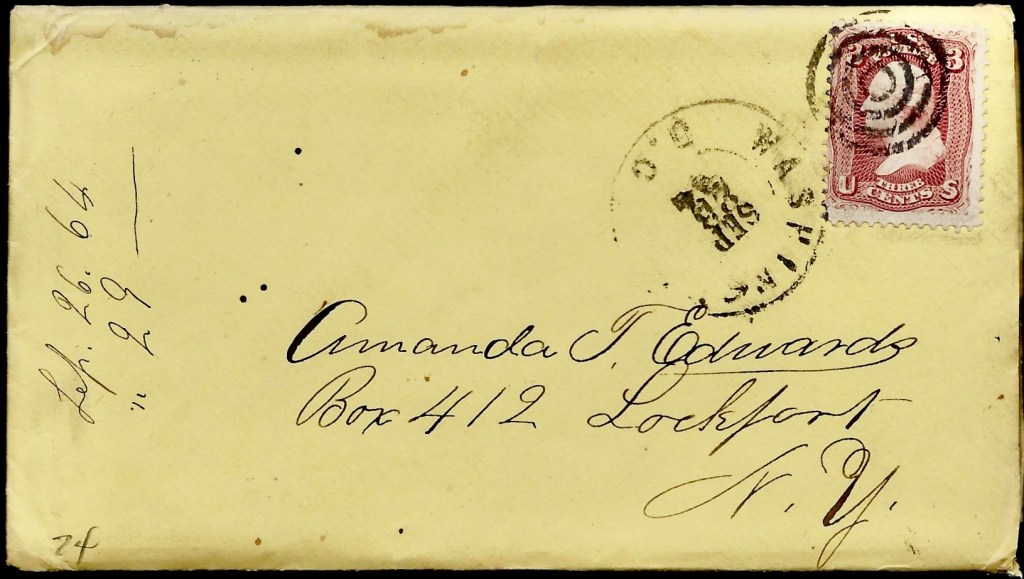 3 3
U THREE CENTS S
WASHING
D.C.
SEP
Amanda T. Edwards
Box 412 Lockport
N. Y.
Sep. 26. 64
" 29
24